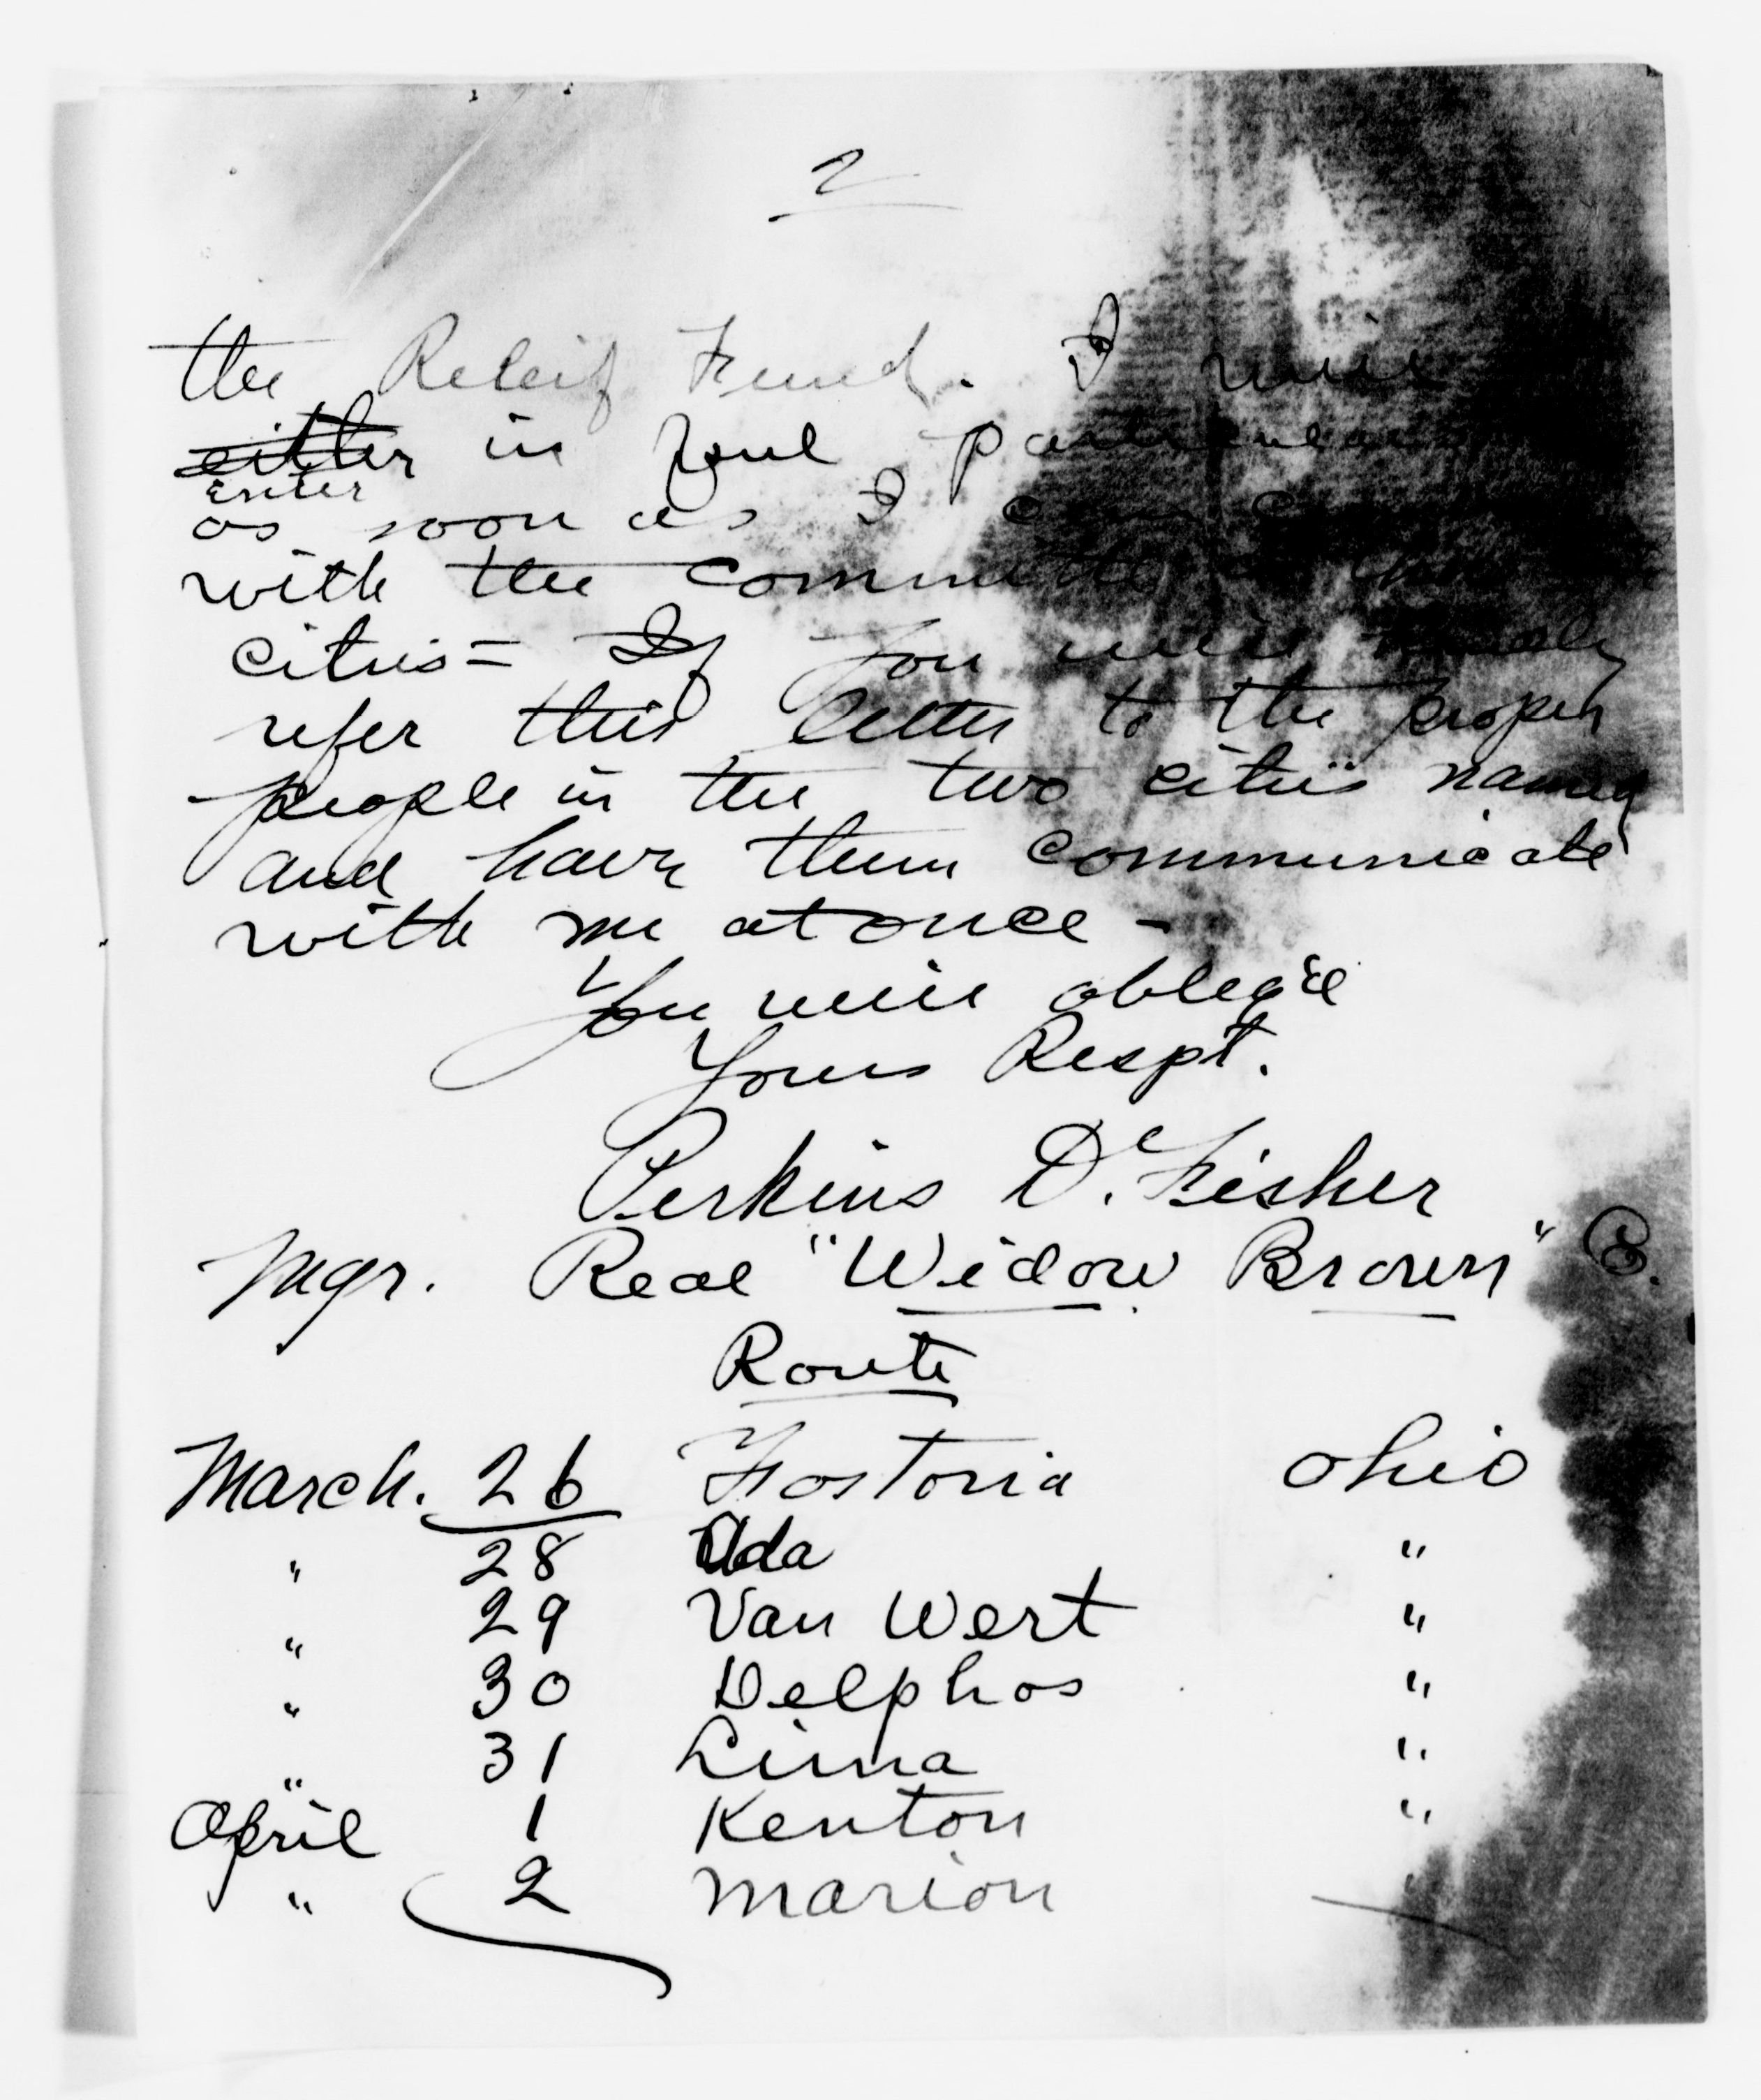 2
the Releif Fund. I will
either in full particulars
enter
as soon as I can
with the committee
cities = If You will Kindly
refer this letter to the proper
people in the two cities named
and have them communicate
with me at once -
You will oblege
Yours Respt.
Perkins D. Fisher
Mgr. Real "Widow Brown" Co.
Route
March. 26 Fostoria Ohio
" 28 Ada "
" 29 Van Wert "
" 30 Delphos "
" 31 Lima "
April 1 Kenton "
" 2 Marion "